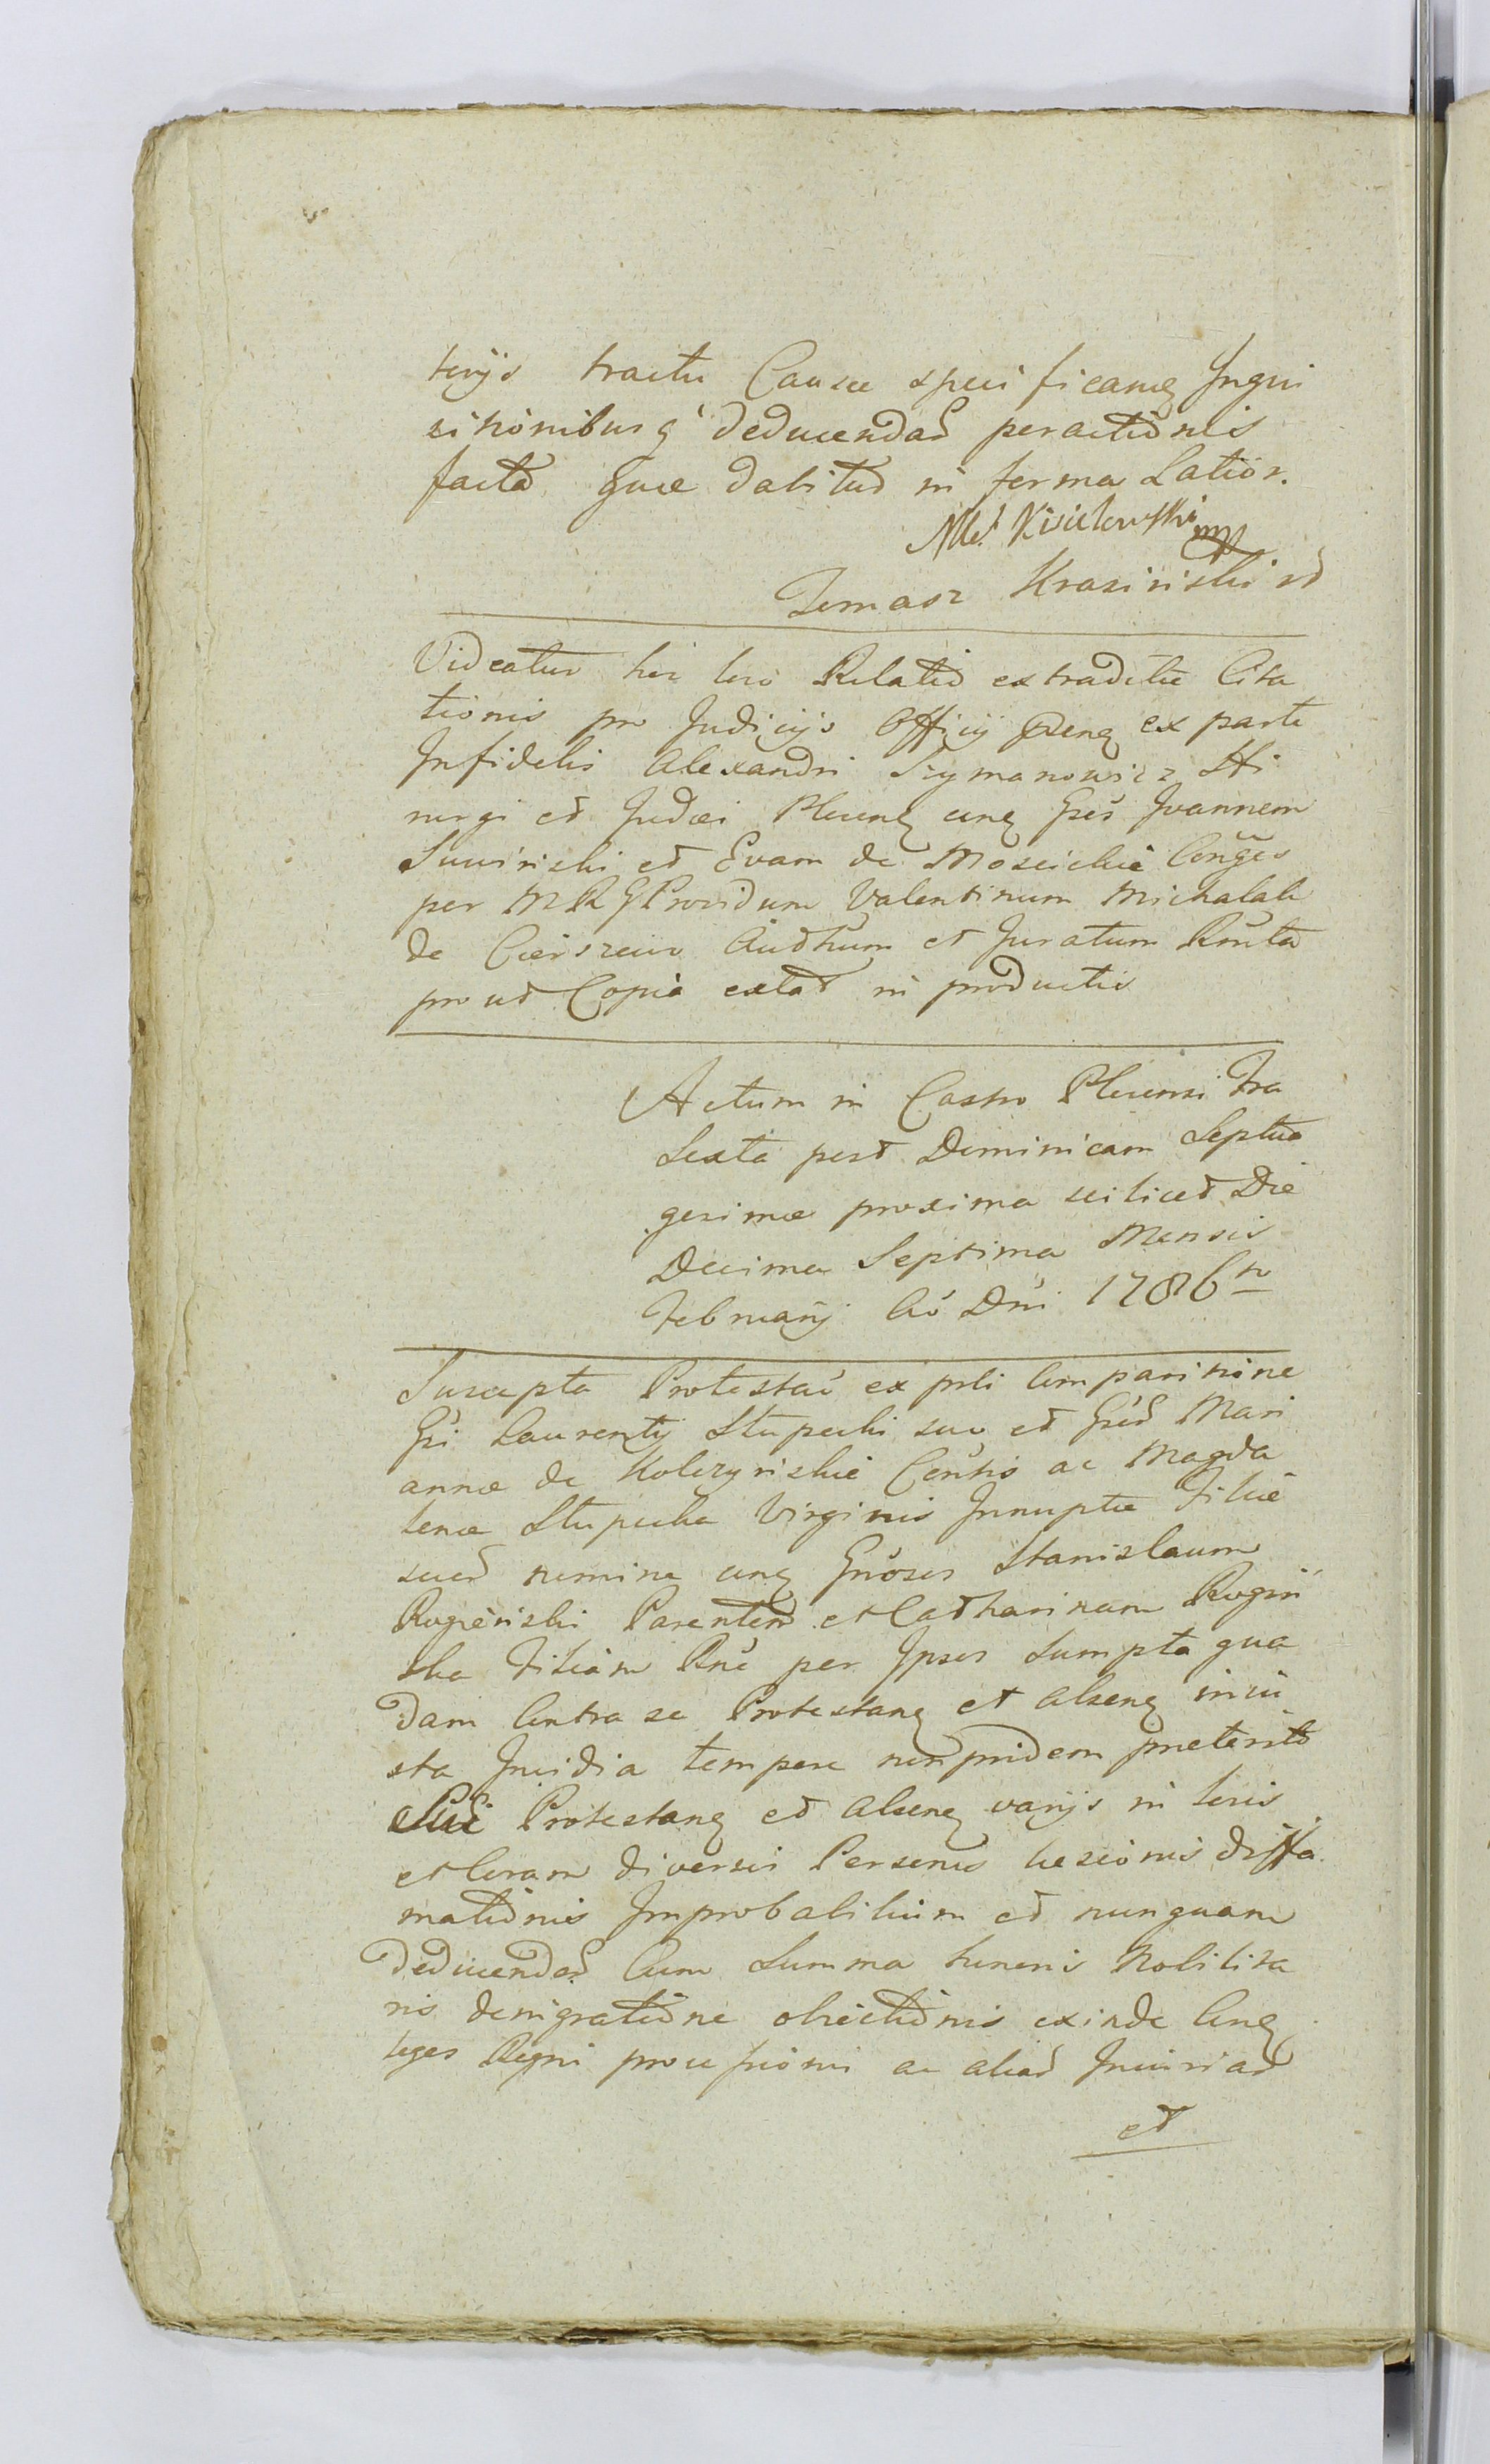 terijs tractu Causæ specificanę Inqui
sitionibusq deducendas peractionis
facta quæ dabitur in forma Latior.
Kisielowski mp
Tomasz Krasinski
Videatur hic loco Relatio extraditæ Cita
tionis pro Judicijs Officij ex parte
Infidelis Alexandri Szymanowicz Hi
rurgi et Judæi Plocenę conę Gsos Joannem
Suwinski et Evam de Moscickie Conges
per M R G Providum Valentinum Michalak
de Cierszewo Authum et Juratum Rnita
prout Copia extat in productis
Actum in Castro Plocensi Fra
Sexta post Dominicam Septua
gesimæ proxima scilicet Die
Decima Septima Mensis
Februarij Ao Dni 1786to
Suscepta Protestao ex prli Comparitione
Gsi Laurentij Stupecki suo et Gsæ Mari
annæ de Kolczynskie Contis ac Magda
lenæ Stupecka Virginis Innuptæ Filiæ
suæ nomine conę Gnosos Stanislaum
Rogienski Parentem et Catharinam Rogin
ska Filiam Rne per Ipsos Sumpta qua
dam Contra se Protestanę et Alsenę iniu
sta Invidia tempore non pridem præterito
Sui Protestanę et Alsenę varijs in locis
et Coram diversis Personis læsionis diffa
mationis Improbabilium et nunquam
deducendas Cum Summa honoris Nobilita
ris denigratione obiectionis exinde Conę
leges Regni processionis ac alias Iniurias
et